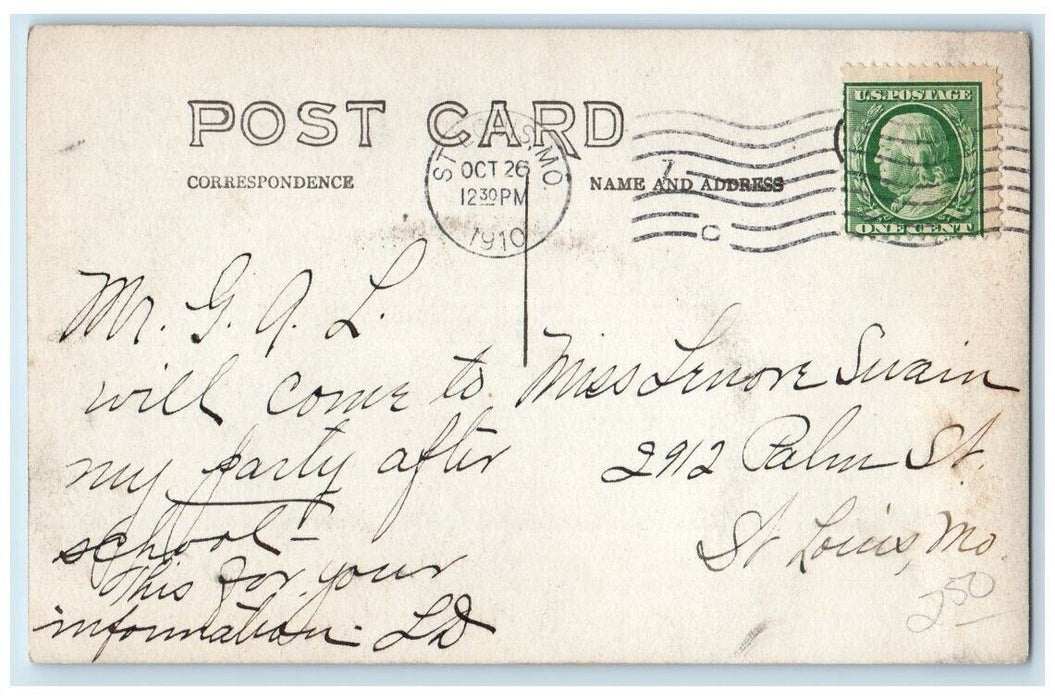 POST CARD
CORRESPONDENCE
NAME AND ADDRESS
ST. LOUIS, MO.
OCT 26
12 30 PM
1910
U.S. POSTAGE
ONE CENT
Mr. G. A. L.
will come to
my party after
school –
This for your
information – LD
Miss Lenore Swain
2912 Palm St.
St Louis, Mo.
2 50